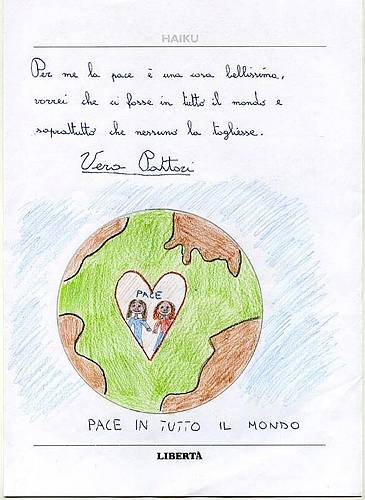 HAIKU
Per me la pace è una cosa bellissima,
vorrei che ci fosse in tutto il mondo e
soprattutto che nessuno la togliesse.
Vera Pattori
PACE
PACE IN TUTTO IL MONDO
LIBERTÀ